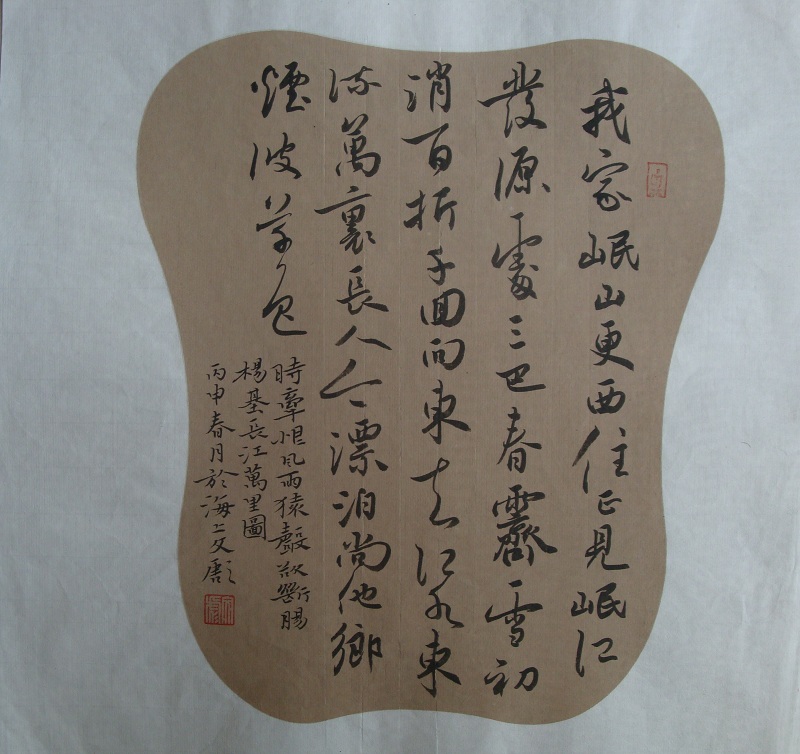 我家岷山更西住正見岷江
發源處三巴春霽雪初
消百折千回向東去江水東
流萬裏長人今漂泊尚他鄉
煙波草色
時牽恨風雨猿聲欲斷腸
楊基長江萬里圖
丙申春月於海上文